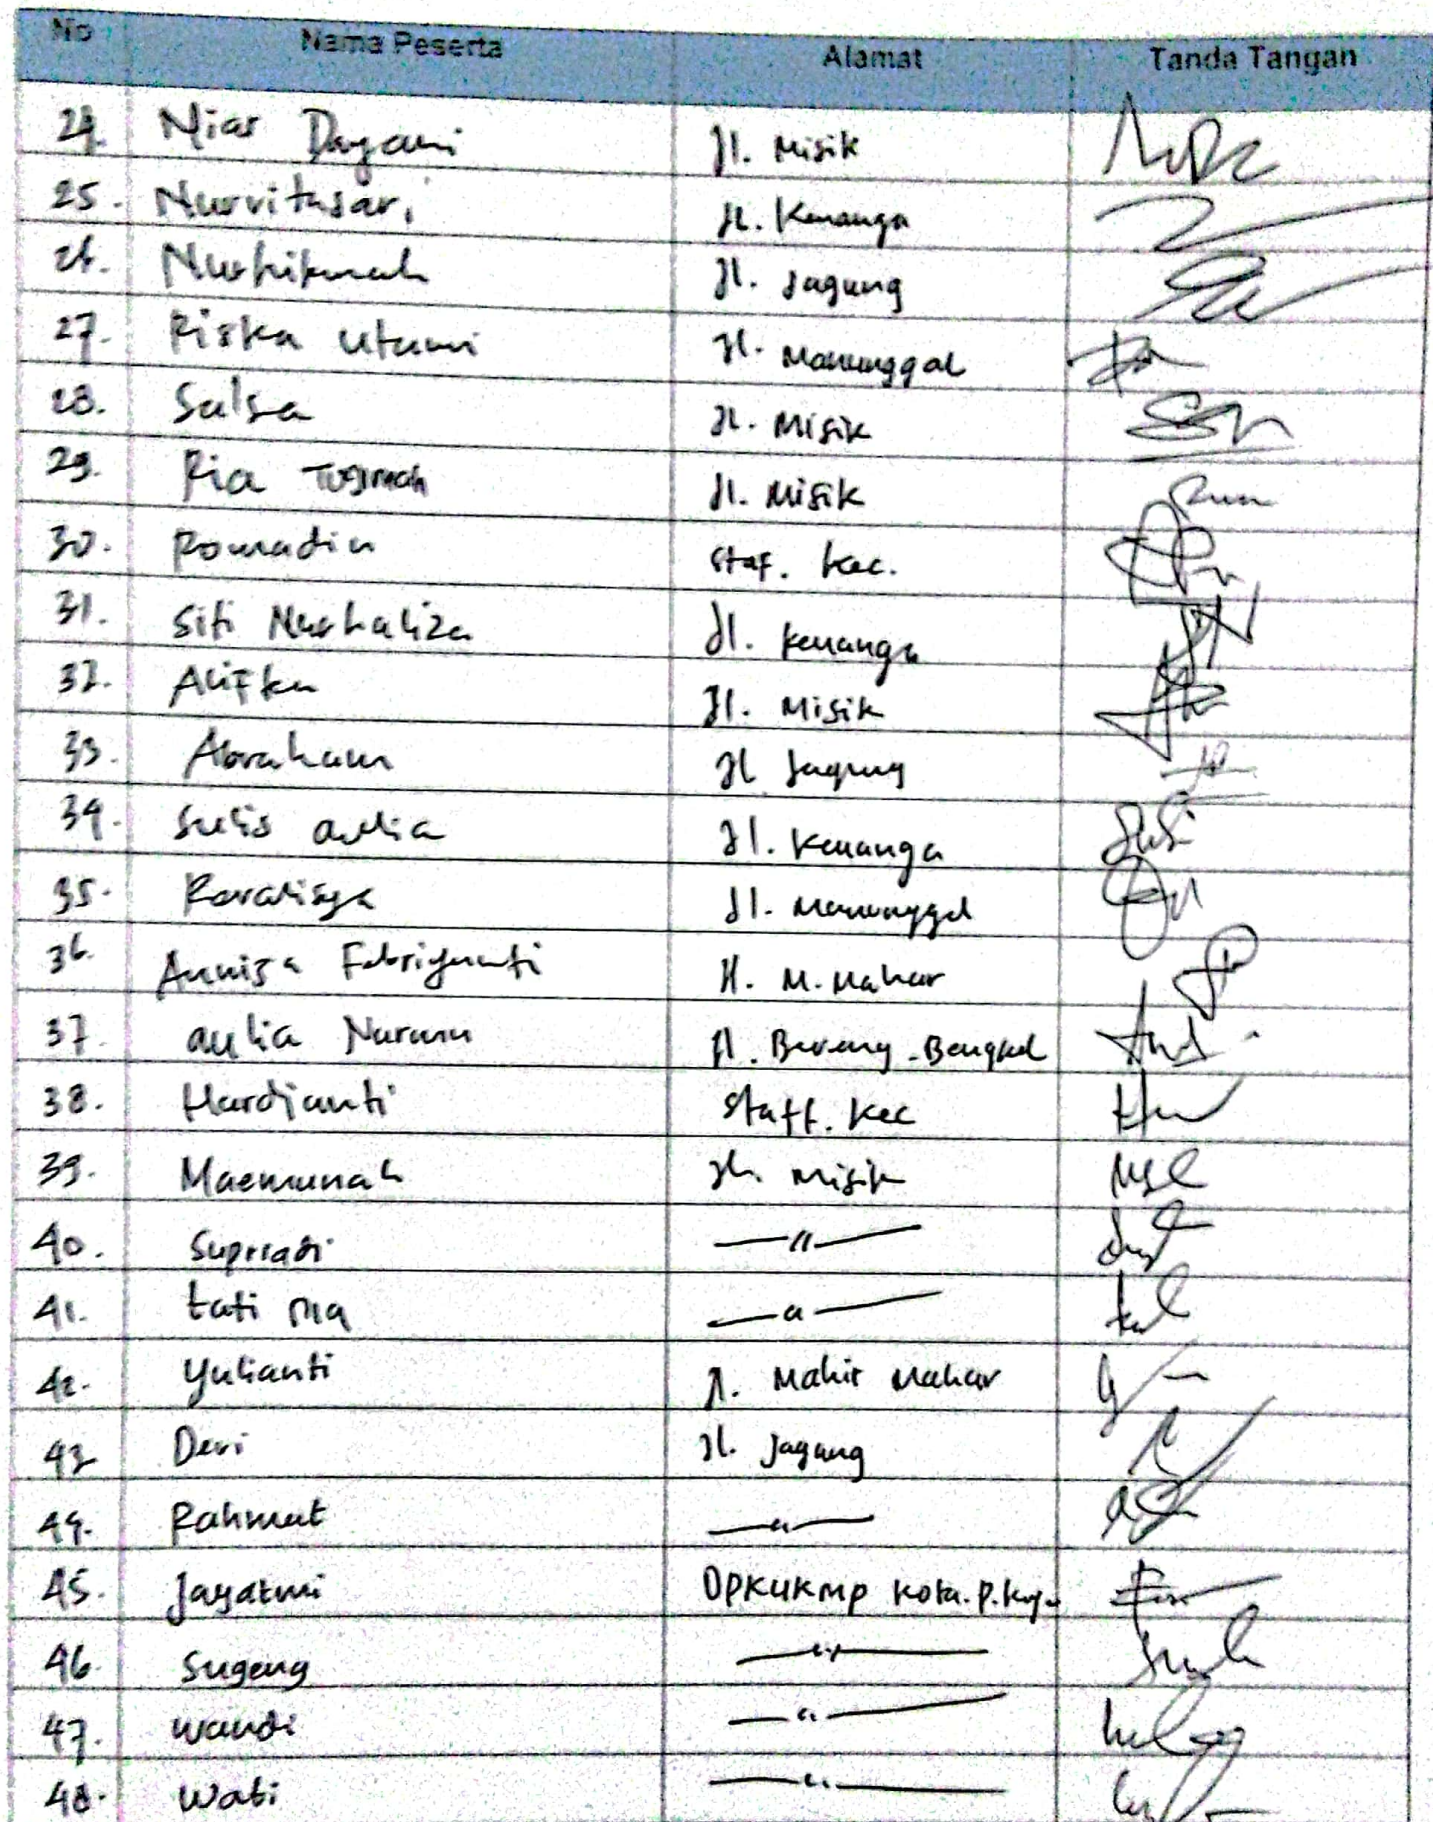 No Nama Peserta Alamat Tanda Tangan
24. Niar Dayani Jl. Misik
25. Nurvitasari Jl. Kenanga
26. Nurhikmah Jl. Jagung
27. Riska Utami Jl. Manunggal
28. Salsa Jl. Misik
29. Ria Jl. Misik
30. Romadin Staf. Kec.
31. Siti Nurhaliza Jl. Kenanga
32. Alifka Jl. Misik
33. Abraham Jl Jagung
34. Sulis aulia Jl. Kenanga
35. Jl. Manunggal
36. Annisa Febriyanti Jl. M. Mahar
37. aulia Jl. Bereng - Bengkel
38. Hardianti Staff. Kec
39. Maemunah Jl. Misik
40. Supriadi —〃—
41. tati ria —〃—
42. Yulianti Jl. Mahir Mahar
43 Devi Jl. Jagung
44. Rahmat —〃—
45. Jayatmi DPKUKMP Kota. P. Raya
46. Sugeng —〃—
47. Wandi —〃—
48. Wati —〃—